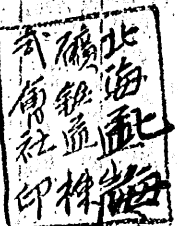 北海
礦鉄道株
式會社印